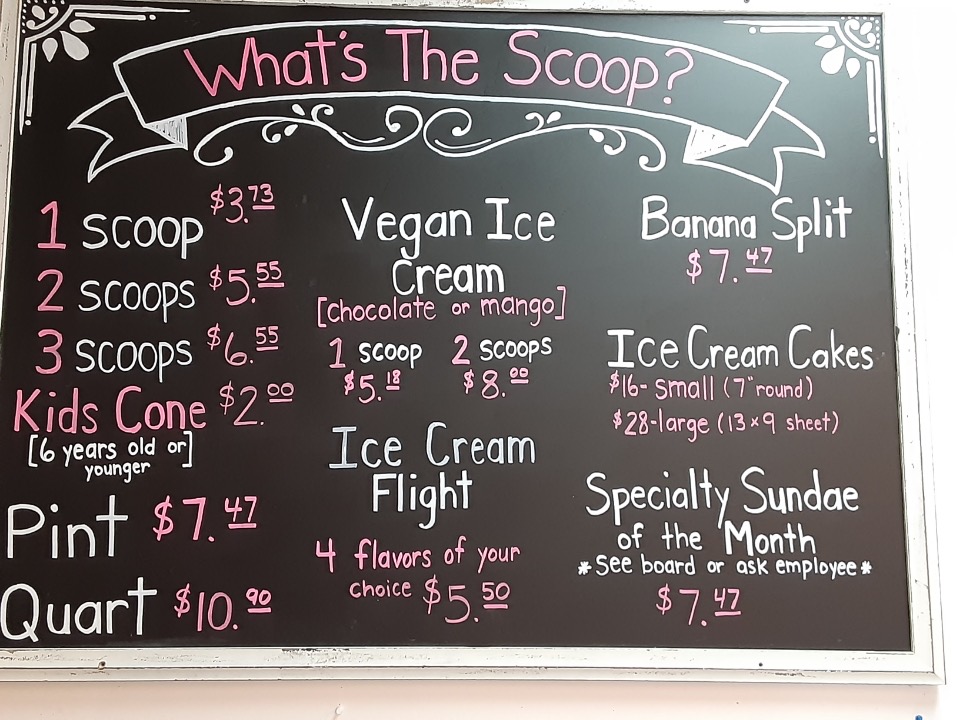 What's The Scoop?
1 scoop $3.73
2 scoops $5.55
3 scoops $6.55
Kids Cone $2.00
[6 years old or]
younger
Pint $7.47
Quart $10.90
Vegan Ice
Cream
[chocolate or mango]
1 scoop 2 scoops
$5.18 $8.00
Ice Cream
Flight
4 flavors of your
choice $5.50
Banana Split
$7.47
Ice Cream Cakes
$16- small (7" round)
$28-large (13 x 9 sheet)
Specialty Sundae
of the Month
*See board or ask employee*
$7.47